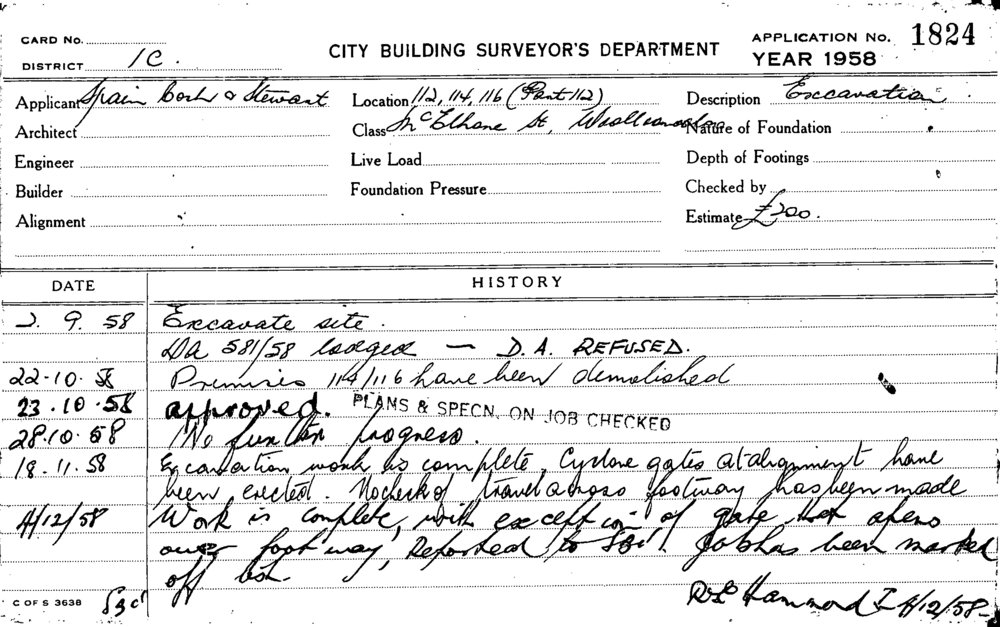 CARD No.
DISTRICT 1C.
CITY BUILDING SURVEYOR'S DEPARTMENT
APPLICATION No. 1824
YEAR 1958
Applicant Spain Cosh & Stewart
Location 112, 114, 116 (Part 112)
Description Excavation
Architect
Class McElhone St, Woolloomooloo
Nature of Foundation
Engineer
Live Load
Depth of Footings
Builder
Foundation Pressure
Checked by
Alignment
Estimate £200.
DATE HISTORY
2. 9. 58 Excavate site.
DA 581/58 lodged — D.A. REFUSED.
22-10-58 Premises 114/116 have been demolished
23.10.58 approved. PLANS & SPECN. ON JOB CHECKED
28.10.58 No further progress.
18.11.58 Excavation work is complete, Cyclone gates at alignment have
been erected. No check of travel across footway has been made
4/12/58 Work is complete, with exception of gate that opens
over footway, Reported to Job has been marked
off
C OF S 3638
Hammond 4/12/58